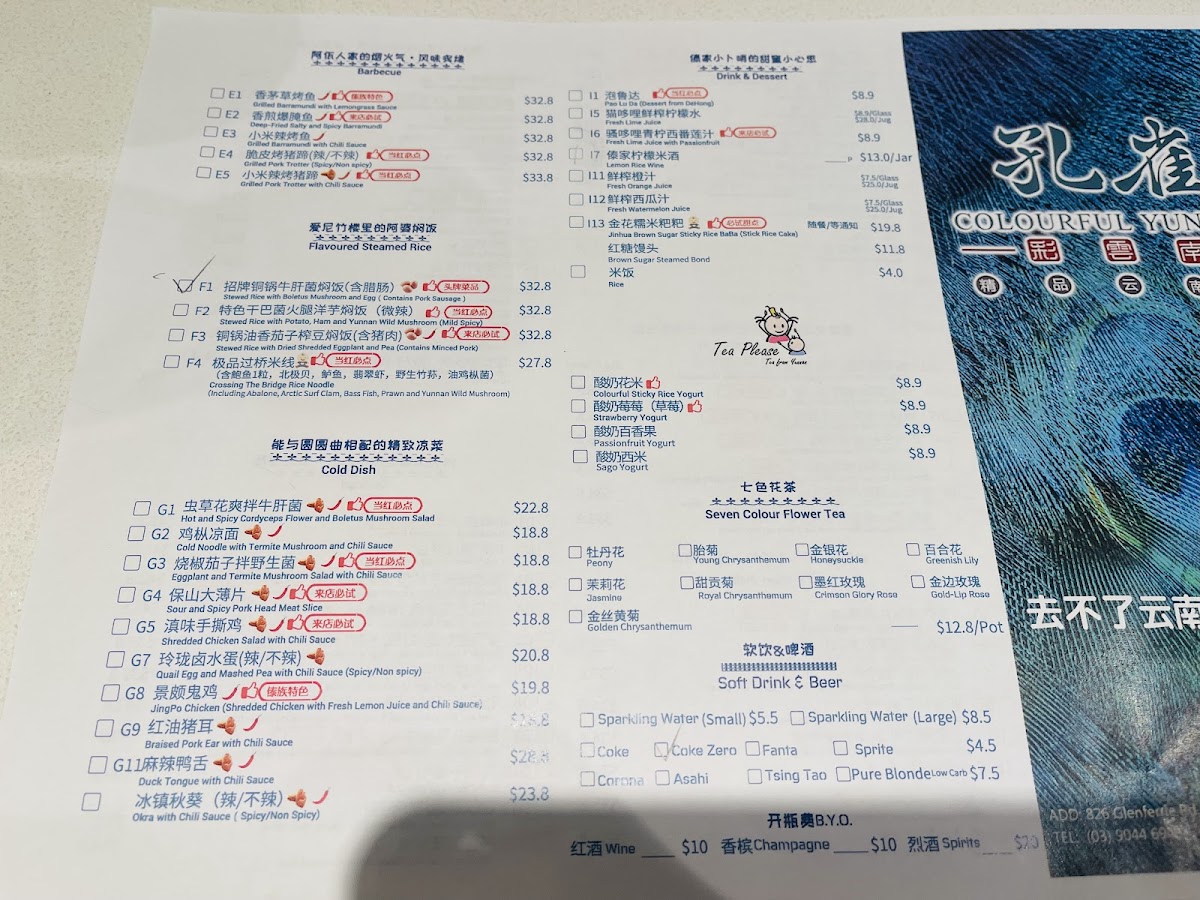 阿佤人家的烟火气·风味烧烤
Barbecue
E1 香茅草烤鱼 傣族特色 $32.8
Grilled Barramundi with Lemongrass Sauce
E2 香煎爆腌鱼 来店必试 $32.8
Deep-Fried Salty and Spicy Barramundi
E3 小米辣烤鱼 $32.8
Grilled Barramundi with Chili Sauce
E4 脆皮烤猪蹄(辣/不辣) 当红必点 $32.8
Grilled Pork Trotter (Spicy/Non spicy)
E5 小米辣烤猪蹄 当红必点 $33.8
Grilled Pork Trotter with Chili Sauce
爱尼竹楼里的阿婆焖饭
Flavoured Steamed Rice
F1 招牌铜锅牛肝菌焖饭(含腊肠) 头牌菜品 $32.8
Stewed Rice with Boletus Mushroom and Egg ( Contains Pork Sausage )
F2 特色干巴菌火腿洋芋焖饭（微辣） 当红必点 $32.8
Stewed Rice with Potato, Ham and Yunnan Wild Mushroom (Mild Spicy)
F3 铜锅油香茄子榨豆焖饭(含猪肉) 来店必试 $32.8
Stewed Rice with Dried Shredded Eggplant and Pea (Contains Minced Pork)
F4 极品过桥米线 当红必点 $27.8
（含鲍鱼1粒，北极贝，鲈鱼，翡翠虾，野生竹荪，油鸡枞菌）
Crossing The Bridge Rice Noodle
(Including Abalone, Arctic Surf Clam, Bass Fish, Prawn and Yunnan Wild Mushroom)
能与圆圆曲相配的精致凉菜
Cold Dish
G1 虫草花爽拌牛肝菌 当红必点 $22.8
Hot and Spicy Cordyceps Flower and Boletus Mushroom Salad
G2 鸡枞凉面 $18.8
Cold Noodle with Termite Mushroom and Chili Sauce
G3 烧椒茄子拌野生菌 当红必点 $18.8
Eggplant and Termite Mushroom Salad with Chili Sauce
G4 保山大薄片 来店必试 $18.8
Sour and Spicy Pork Head Meat Slice
G5 滇味手撕鸡 来店必试 $18.8
Shredded Chicken Salad with Chili Sauce
G7 玲珑卤水蛋(辣/不辣) $20.8
Quail Egg and Mashed Pea with Chili Sauce (Spicy/Non spicy)
G8 景颇鬼鸡 傣族特色 $19.8
JingPo Chicken (Shredded Chicken with Fresh Lemon Juice and Chili Sauce)
G9 红油猪耳
Braised Pork Ear with Chili Sauce
G11麻辣鸭舌 $28.8
Duck Tongue with Chili Sauce
冰镇秋葵（辣/不辣） $23.8
Okra with Chili Sauce ( Spicy/Non Spicy)
傣家小卜哨的甜蜜小心思
Drink & Dessert
I1 泡鲁达 当红必点 $8.9
Pao Lu Da (Dessert from DeHong)
I5 猫哆哩鲜榨柠檬水 $8.9/Glass
Fresh Lime Juice $28.0/Jug
I6 骚哆哩青柠西番莲汁 来店必试 $8.9
Fresh Lime Juice with Passionfruit
I7 傣家柠檬米酒 $13.0/Jar
Lemon Rice Wine
I11 鲜榨橙汁 $7.5/Glass
Fresh Orange Juice $25.0/Jug
I12 鲜榨西瓜汁 $7.5/Glass
Fresh Watermelon Juice $25.0/Jug
I13 金花糯米粑粑 必试甜点 随餐/等通知 $19.8
Jinhua Brown Sugar Sticky Rice BaBa (Stick Rice Cake)
红糖馒头 $11.8
Brown Sugar Steamed Bond
米饭 $4.0
Rice
Tea Please
Tea from Yunnan
酸奶花米 $8.9
Colourful Sticky Rice Yogurt
酸奶莓莓（草莓） $8.9
Strawberry Yogurt
酸奶百香果 $8.9
Passionfruit Yogurt
酸奶西米 $8.9
Sago Yogurt
七色花茶
Seven Colour Flower Tea
牡丹花 胎菊 金银花 百合花
Peony Young Chrysanthemum Honeysuckle Greenish Lily
茉莉花 甜贡菊 墨红玫瑰 金边玫瑰
Jasmine Royal Chrysanthemum Crimson Glory Rose Gold-Lip Rose
金丝黄菊
Golden Chrysanthemum
$12.8/Pot
软饮&啤酒
Soft Drink & Beer
Sparkling Water (Small) $5.5 Sparkling Water (Large) $8.5
Coke Coke Zero Fanta Sprite $4.5
Corona Asahi Tsing Tao Pure Blonde Low Carb $7.5
开瓶费B.Y.O.
红酒 Wine ___ $10 香槟Champagne ___ $10 烈酒 Spirits ___ $20
孔雀
COLOURFUL YUN
彩雲南
精品云南
去不了云南
ADD: 826 Glenferrie
TEL: (03) 9044